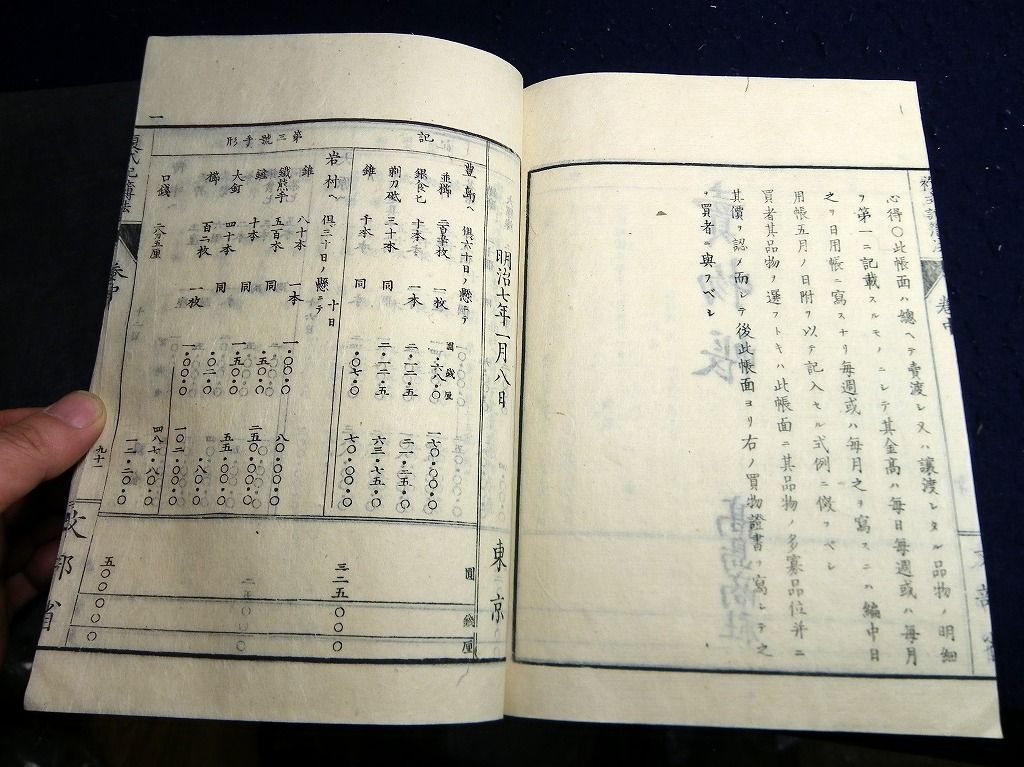 心得〇此帳面ハ總ヘテ賣渡シ又ハ讓渡シタル品物ノ明細
ヲ第一ニ記載スルモノニシテ其金高ハ毎日毎週或ハ毎月
之ヲ日用帳ニ寫スナリ毎週或ハ毎月之ヲ寫スニハ編中日
用帳五月ノ日附ヲ以テ記入セル式例ニ倣フヘシ
買者其品物ヲ選フトキハ此帳面ニ其品物ノ多寡品位并ニ
其價ヲ認メ而シテ後此帳面ヨリ右ノ買物證書ヲ寫シテ之
ヲ買者ニ與フベシ
卷中
文部省
一
明治七年一月八日
東京
記
第三號手形
圓
錢
厘
豊島ヘ 俱六十日ノ懸ニテ
圓 錢 厘
並櫛 一枚 一・六八・〇 一七〇・〇〇・〇
銀食匕 十本 一本 二・一二・五 二一・二五・〇
剃刀砥 三十本 同 二・一二・五 六三・七五・〇
錐 千本 同 ・〇七・〇 七〇・〇〇・〇
三二五 〇〇 〇
岩村ヘ 俱三十日ノ懸ニテ
十日
錐 八十本 一本 一・〇〇・〇 八〇・〇〇・〇
五百本 同 ・五〇・〇 二五〇・〇〇・〇
十本 同
大釘 四十本 同 一・五〇・〇
櫛 百二枚 一枚 一・〇〇・〇 一〇二・〇〇・〇
四八七・八〇・〇
口錢 二分五厘 一二・二〇・〇
五〇〇 〇〇 〇
卷中
九十一
文部省